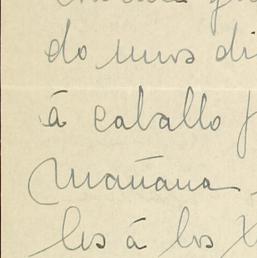 do unos di
á caballo
mañana
les á los